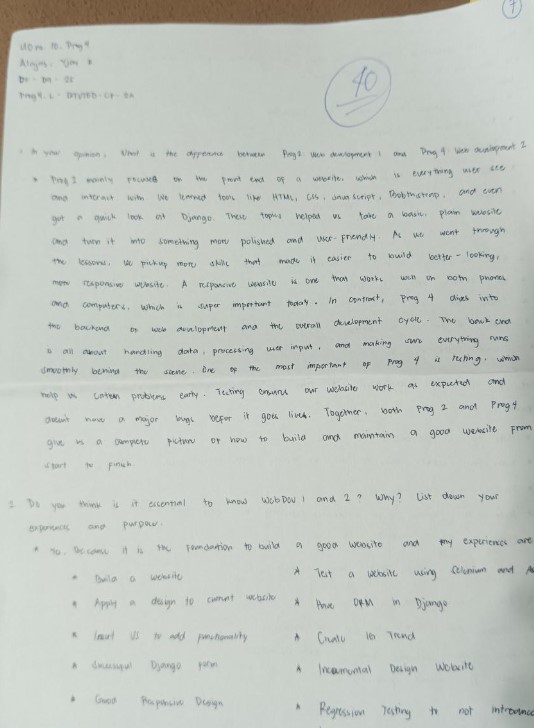 7
Prog 4
40
1. In your opinion, what is the difference between Prog 2 Web development 1 and Prog 4 Web development 2
* Prog 2 mainly focused on the front end of a website, which is everything user see
and interact with. We learned tools like HTML, CSS, Javascript, Bootstrap, and even
got a quick look at Django. These topics helped us take a basic, plain website
and turn it into something more polished and user-friendly. As we went through
the lessons, we pickup more skills that made it easier to build better-looking,
more responsive website. A responsive website is one that works well on both phones
and computers, which is super important today. In contrast, Prog 4 dives into
the backend of web development and the overall development cycle. The back end
is all about handling data, processing user input, and making sure everything runs
smoothly behind the scene. One of the most important of Prog 4 is testing, which
help us catch problems early. Testing ensures our website work as expected and
doesn't have a major bugs befor it goes lives. Together, both Prog 2 and Prog 4
give us a complete picture of how to build and maintain a good website from
start to finish.
2. Do you think is it essential to know WebDev 1 and 2? Why? List down your
experiences and purpose.
* Yes. Because it is the foundation to build a good website and my experiences are
* Build a website
* Test a website using Selenium and
* Apply a design to current website
* Have ORM in Django
* Insert JS to add functionality
* Create in Trend
* Successful Django Form
* Incremental Design Website
* Good Responsive Design
* Regression Testing to not introduce